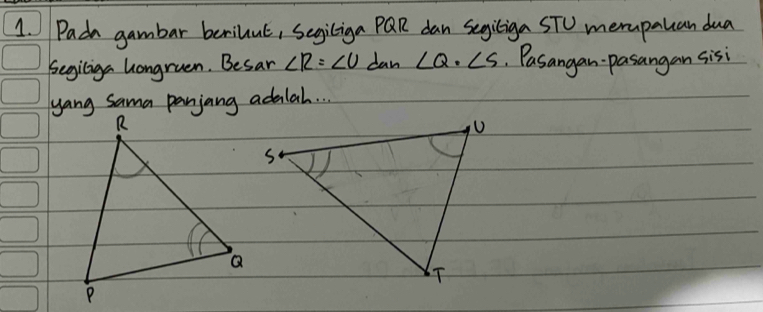 1. Pada gambar berikut, segitiga PQR dan segitiga STU merupakan dua
segitiga kongruen. Besar ∠R = ∠U dan ∠Q = ∠S. Pasangan-pasangan sisi
yang sama panjang adalah...
R
U
S
Q
T
P